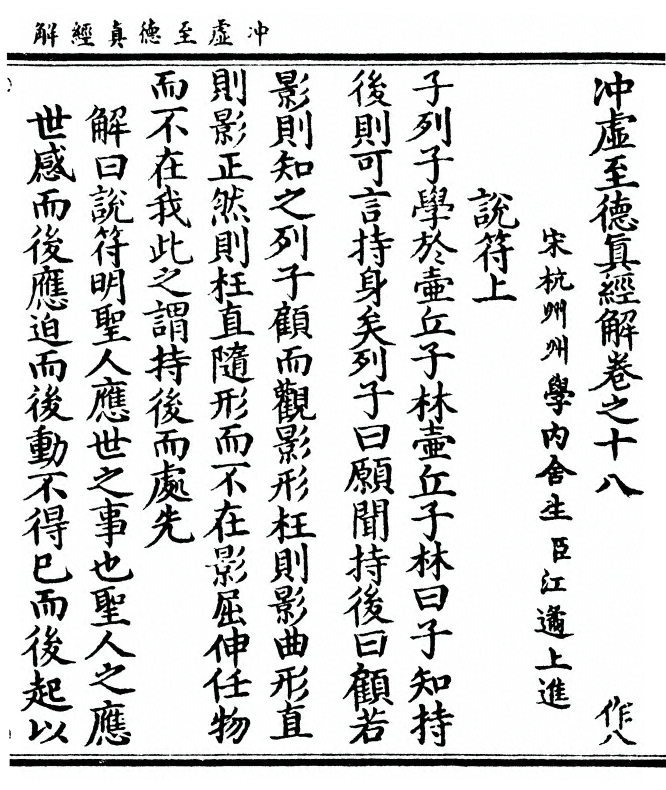 冲虛至德真經解
冲虛至德真經解卷之十八 作八
宋杭州州學內舍生臣江遹上進
說符上
子列子學於壺丘子林壺丘子林曰子知持
後則可言持身矣列子曰願聞持後曰顧若
影則知之列子顧而觀影形枉則影曲形直
則影正然則枉直隨形而不在影屈伸任物
而不在我此之謂持後而處先
解曰說符明聖人應世之事也聖人之應
世感而後應迫而後動不得已而後起以